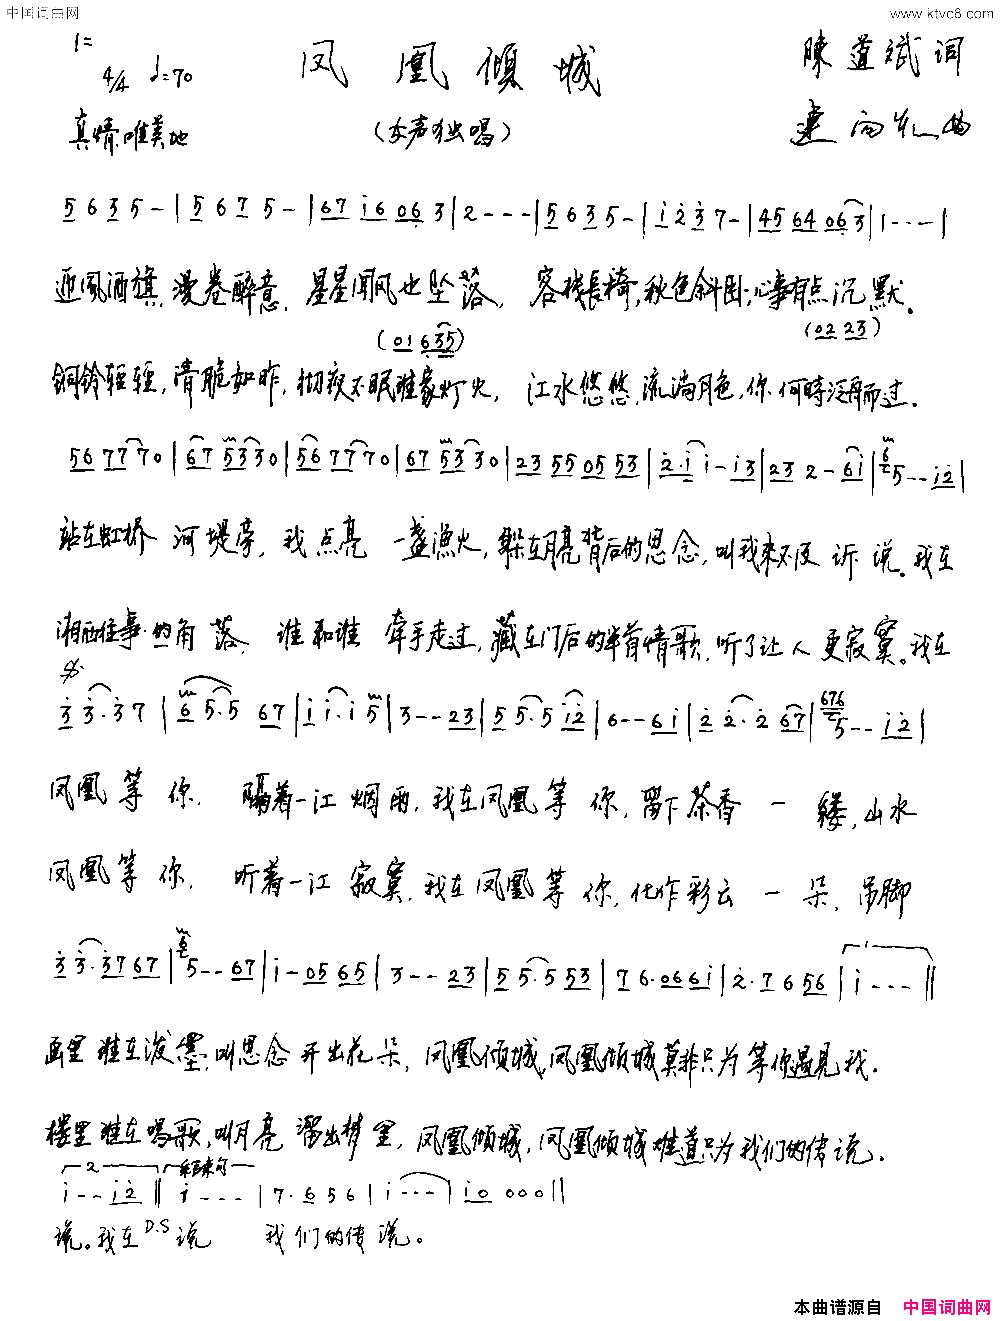 中国词曲网
www.ktvc8.com
1=
4/4 ♩=70
凤凰倾城
陳道斌词
曲
真情、唯美地
(女声独唱)
5 6 3 5 - | 5 6 7 5 - | 67 i6 06 3 | 2 - - - | 5 6 3 5 - | i 2 3 7 - | 45 64 06 3 | 1 - - - |
迎风酒旗,漫卷醉意,星星闻风也坠落,客栈長椅,秋色斜卧,心事有点沉默。
(01 635)
(02 23)
铜铃轻轻,清脆如昨,彻夜不眠谁家灯火,江水悠悠,流淌月色,你何時泛舟而过。
56 77 70 | 67 53 30 | 56 77 70 | 67 53 30 | 23 55 05 53 | 2·i i - i3 | 23 2 - 6i | 6 5 - - i2 |
站在虹桥 河堤旁,我点亮 一盏漁火,躲在月亮背后的思念,叫我来不及诉说。我在
湘西往事的角落,谁和谁 牵手走过,藏在门后的半首情歌,听了让人更寂寞。我在
3 3·3 7 | 6 5·5 67 | i i·i 5 | 3 - - 23 | 5 5·5 i2 | 6 - - 6i | 2 2·2 67 | 676 5 - - i2 |
凤凰等你,隔着一江烟雨,我在凤凰等你,留下茶香一缕,山水
凤凰等你,听着一江寂寞,我在凤凰等你,化作彩云一朵,吊脚
3 3·37 67 | 6 5 - - 67 | i - 05 65 | 3 - - 23 | 5 5·5 53 | 7 6·06 6i | 2·7 6 56 | 1 i - - - ||
画里谁在泼墨,叫思念开出花朵,凤凰倾城,凤凰倾城莫非只为等你遇见我。
楼里谁在唱歌,叫月亮溜出梦里,凤凰倾城,凤凰倾城难道只为我们的传说。
2 结束句
i - - i2 || i - - - | 7·6 5 6 | i - - - | i0 000 ||
说。我在 D.S 说 我们的传说。
本曲谱源自 中国词曲网